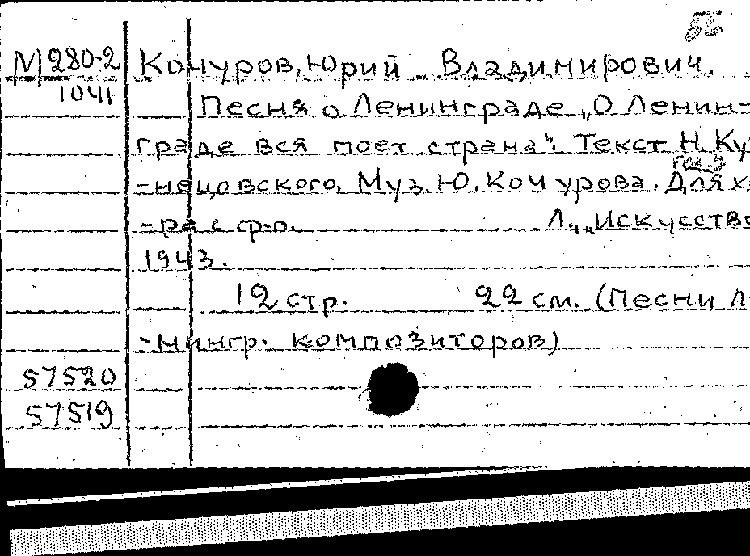 М 280-2 Кочуров, Юрий Владимирович.
1041
Песня о Ленинграде "О Ленин-
граде вся поет страна". Текст Н. Ку
-нецовского. Муз. Ю. Кочурова. Для х
-ра с ф-п. Л., "Искусство
1943.
12 стр. 22 см. (Песни л
-нингр. композиторов)
57520
57519